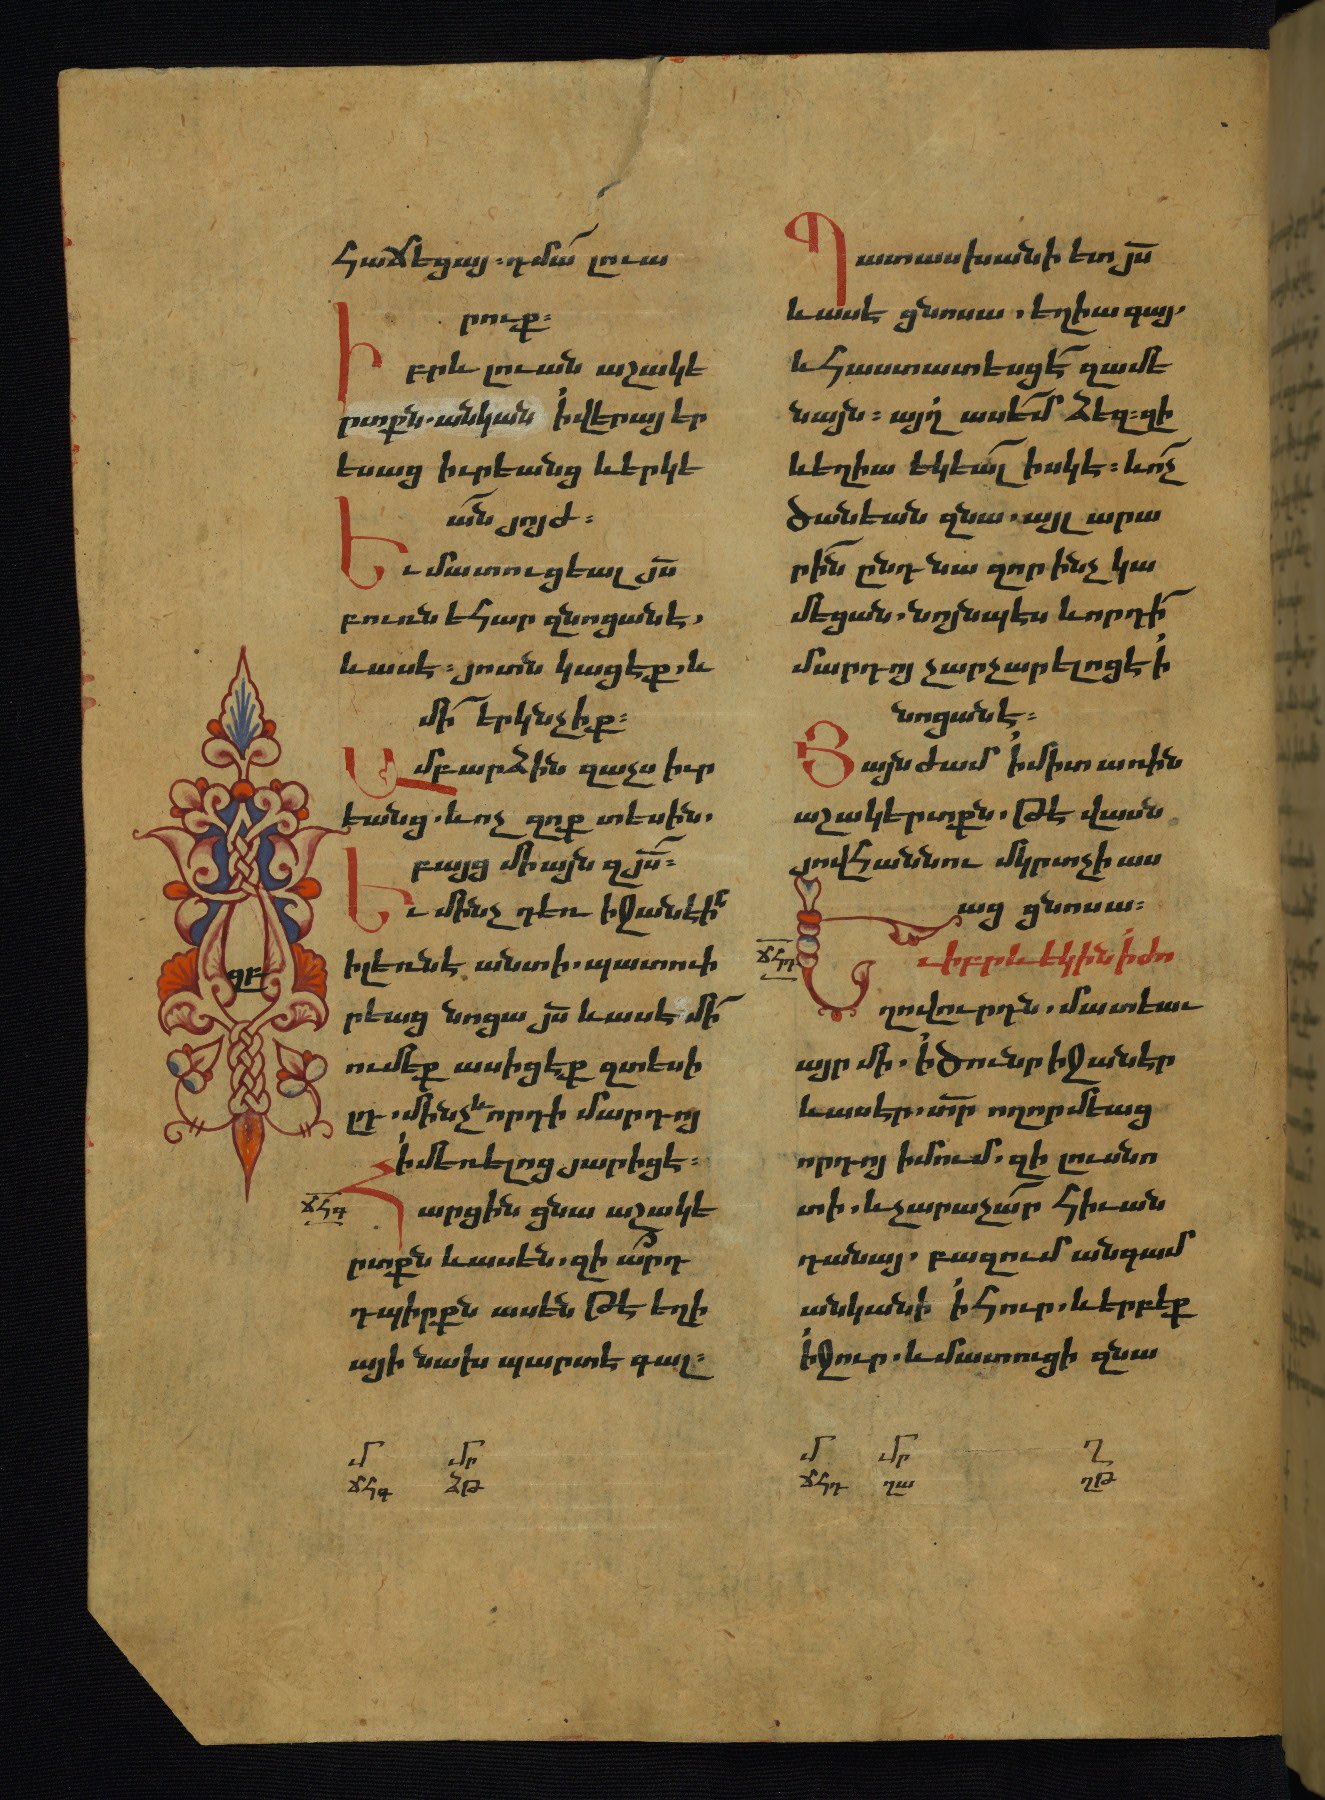 հաճեցայ։ դմա՟ լուա
րուք։
Իբրև լուան աշակե
րտքն․ անկան ի վերայ եր
եսաց իւրեանց և երկե
ա՟ն յոյժ։
Եւ մատուցեալ յ՟ս
բուռն եհար զնոցանէ,
և ասէ։ յոտն կացէք․ և
մի՟ երկնչիք։
Ամբարձին զաչս իւր
եանց․ և ոչ զոք տեսին․
բայց միայն զյ՟ս։
Եւ մինչ դեռ իջանէին
ի լեռնէ անտի․ պատուի
րեաց նոցա յ՟ս և ասէ մի՟
ումեք ասիցէք զտեսի
լդ․ մինչև որդի մարդոյ
ի մեռելոց յարիցէ։
ՃՀԳ
Հարցին ցնա աշակե
րտքն և ասեն․ զի ա՟րդ
դպիրքն ասեն թէ եղի
այի նախ պարտէ գալ։
ՂԲ
Մ Մր
ՃՀԳ ՁԹ
Պատասխանի ետ յ՟ս
և ասէ ցնոսա, եղիա գայ,
և հաստատեսցէ՟ զամե
նայն։ այղ ասե՟մ ձեզ։ զի
և եղիա եկեա՟լ իսկ է։ և ո՟չ
ծանեան զնա․ այլ արա
րի՟ն ընդ նա զոր ինչ կա
մեցան․ նոյնպէս և որդի՟
մարդոյ չարչարելոց է ի
նոցանէ։
Յայնժամ ի միտ առին
աշակերտքն․ թէ վասն
յովհաննու մկրտչի աս
աց ցնոսա։
ՃՀԴ
Եւ իբրև եկին ի ժո
ղովուրդն, մատեաւ
այր մի․ ի ծունր իջանէր
և ասէր․ տ՟ր ողորմեաց
որդոյ իմում․ զի լուսնո
տի․ և չարաչա՟ր հիւան
դանայ․ բազում անգամ
անկանի ի հուր․ և երբեք
ի ջուր․ և մատուցի զնա
Մ Մր Ղ
ՃՀԴ ՂԱ ՂԹ